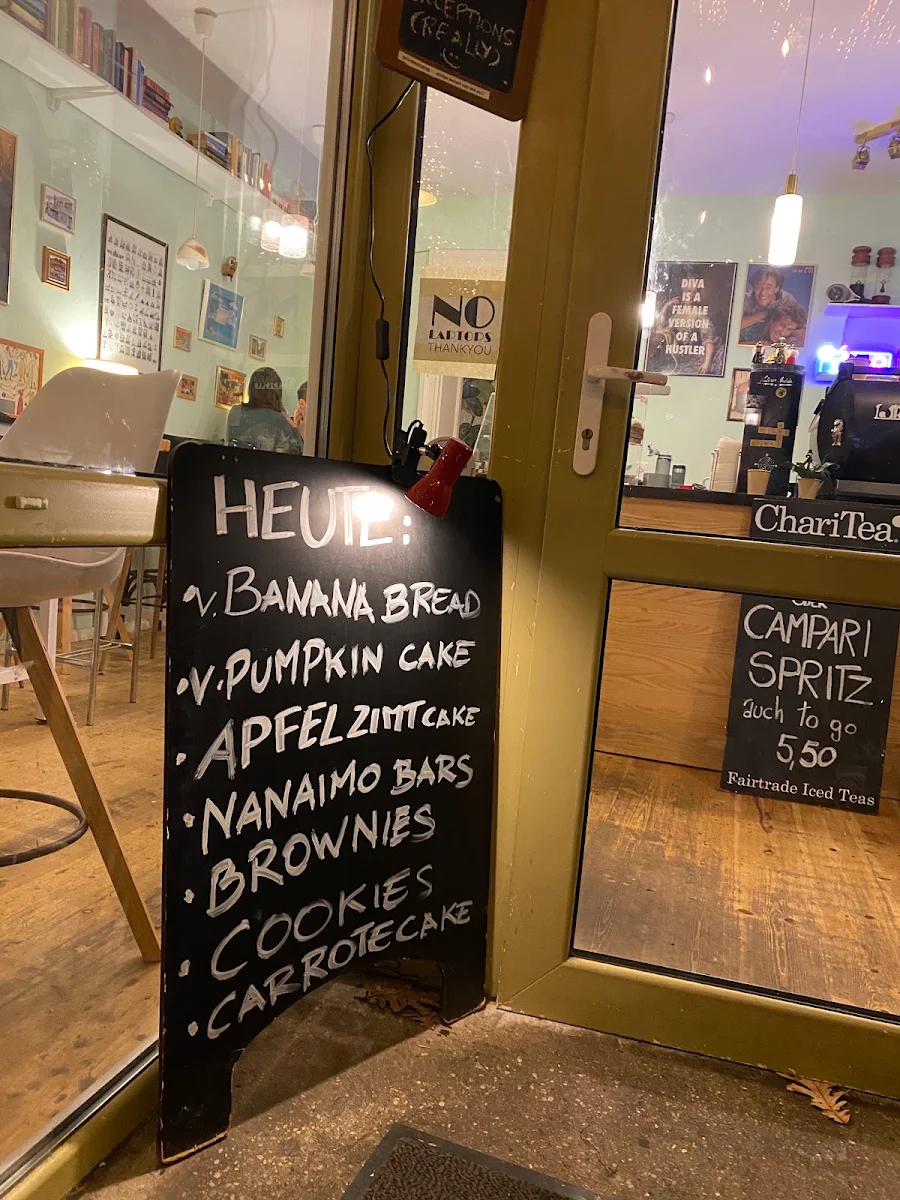 (REALLY)
NO
LAPTOPS
THANKYOU
DIVA
IS A
FEMALE
VERSION
OF A
HUSTLER
HEUTE:
• V. BANANA BREAD
• V. PUMPKIN CAKE
• APFELZIMTCAKE
• NANAIMO BARS
• BROWNIES
• COOKIES
• CARROTECAKE
ChariTea
CAMPARI
SPRITZ
auch to go
5,50
Fairtrade Iced Teas